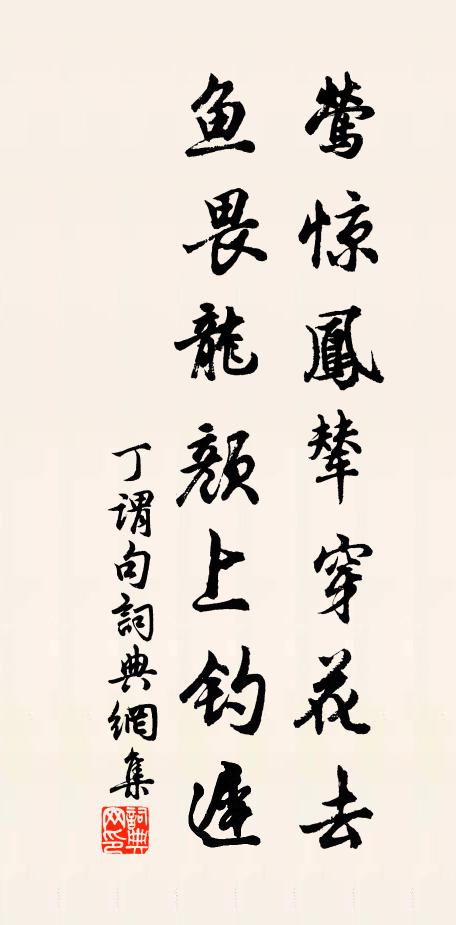 莺惊鳳辇穿花去
鱼畏龍颜上钓遲
丁谓句詞典網集
詞典网印